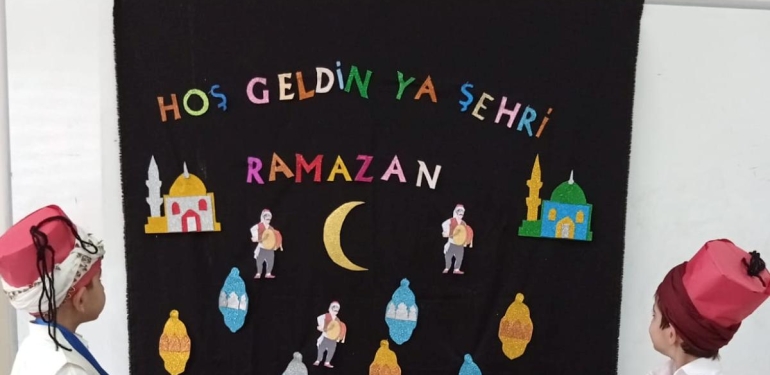 HOŞ GELDİN YA ŞEHRİ
RAMAZAN